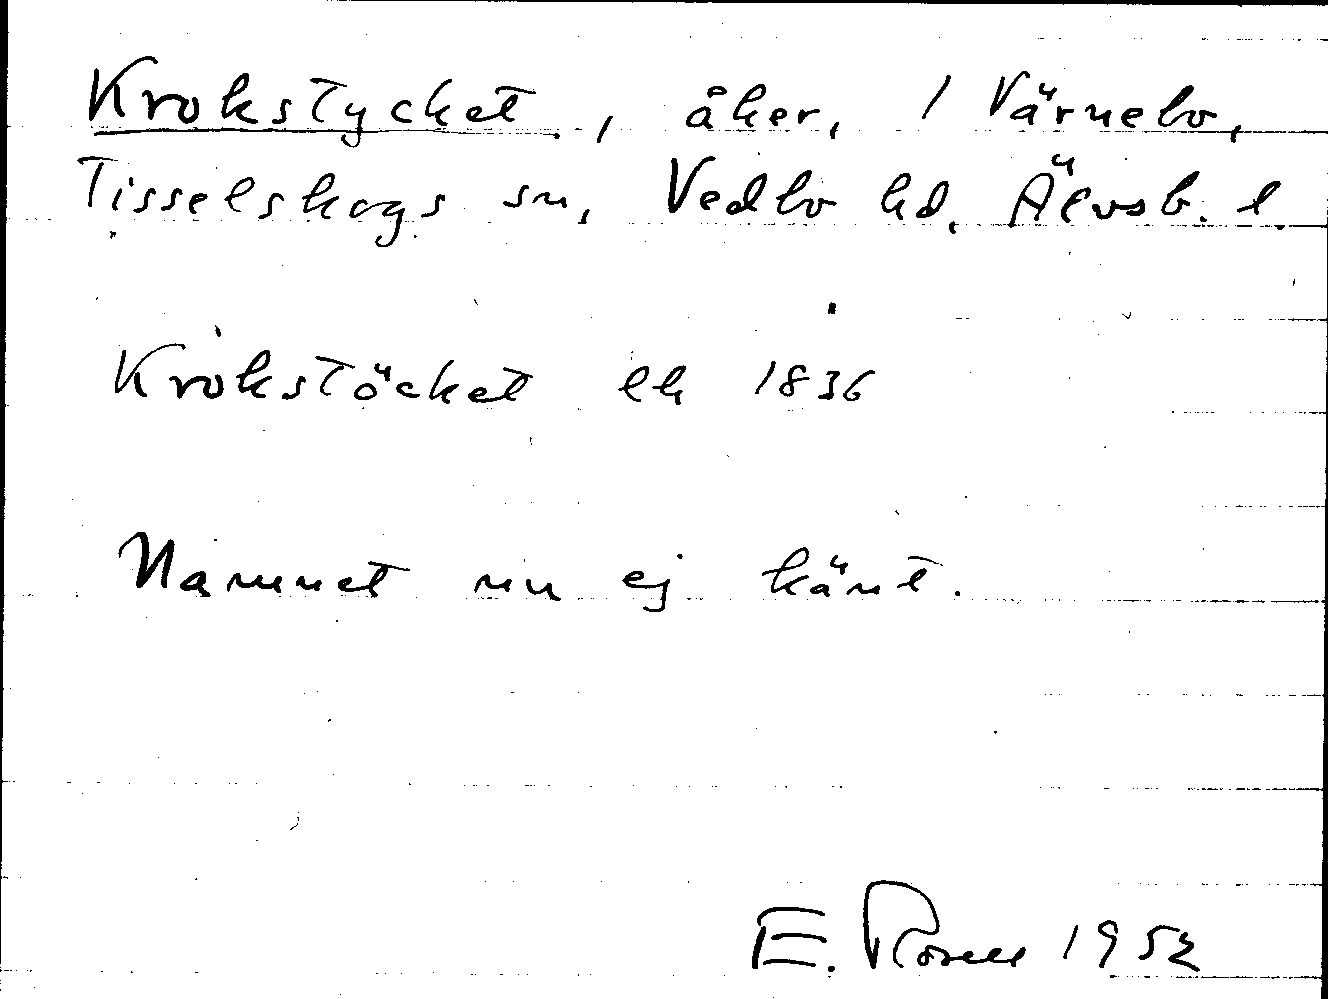 Krokstycket, åker, 1 Värnebo,
Tisselskogs sn, Vedbo hd, Älvsb. l.
Krokstöcket lh 1836
Namnet nu ej känt.
E. Rosell 1952